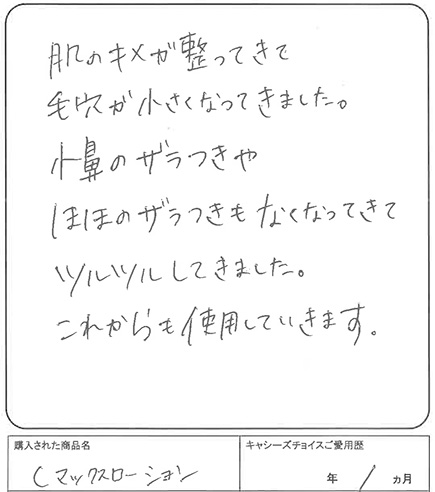 肌のキメが整ってきて
毛穴が小さくなってきました。
小鼻のザラつきや
ほほのザラつきもなくなってきて
ツルツルしてきました。
これからも使用していきます。
購入された商品名
Cマックスローション
キャシーズチョイスご愛用歴
年 1 ヵ月